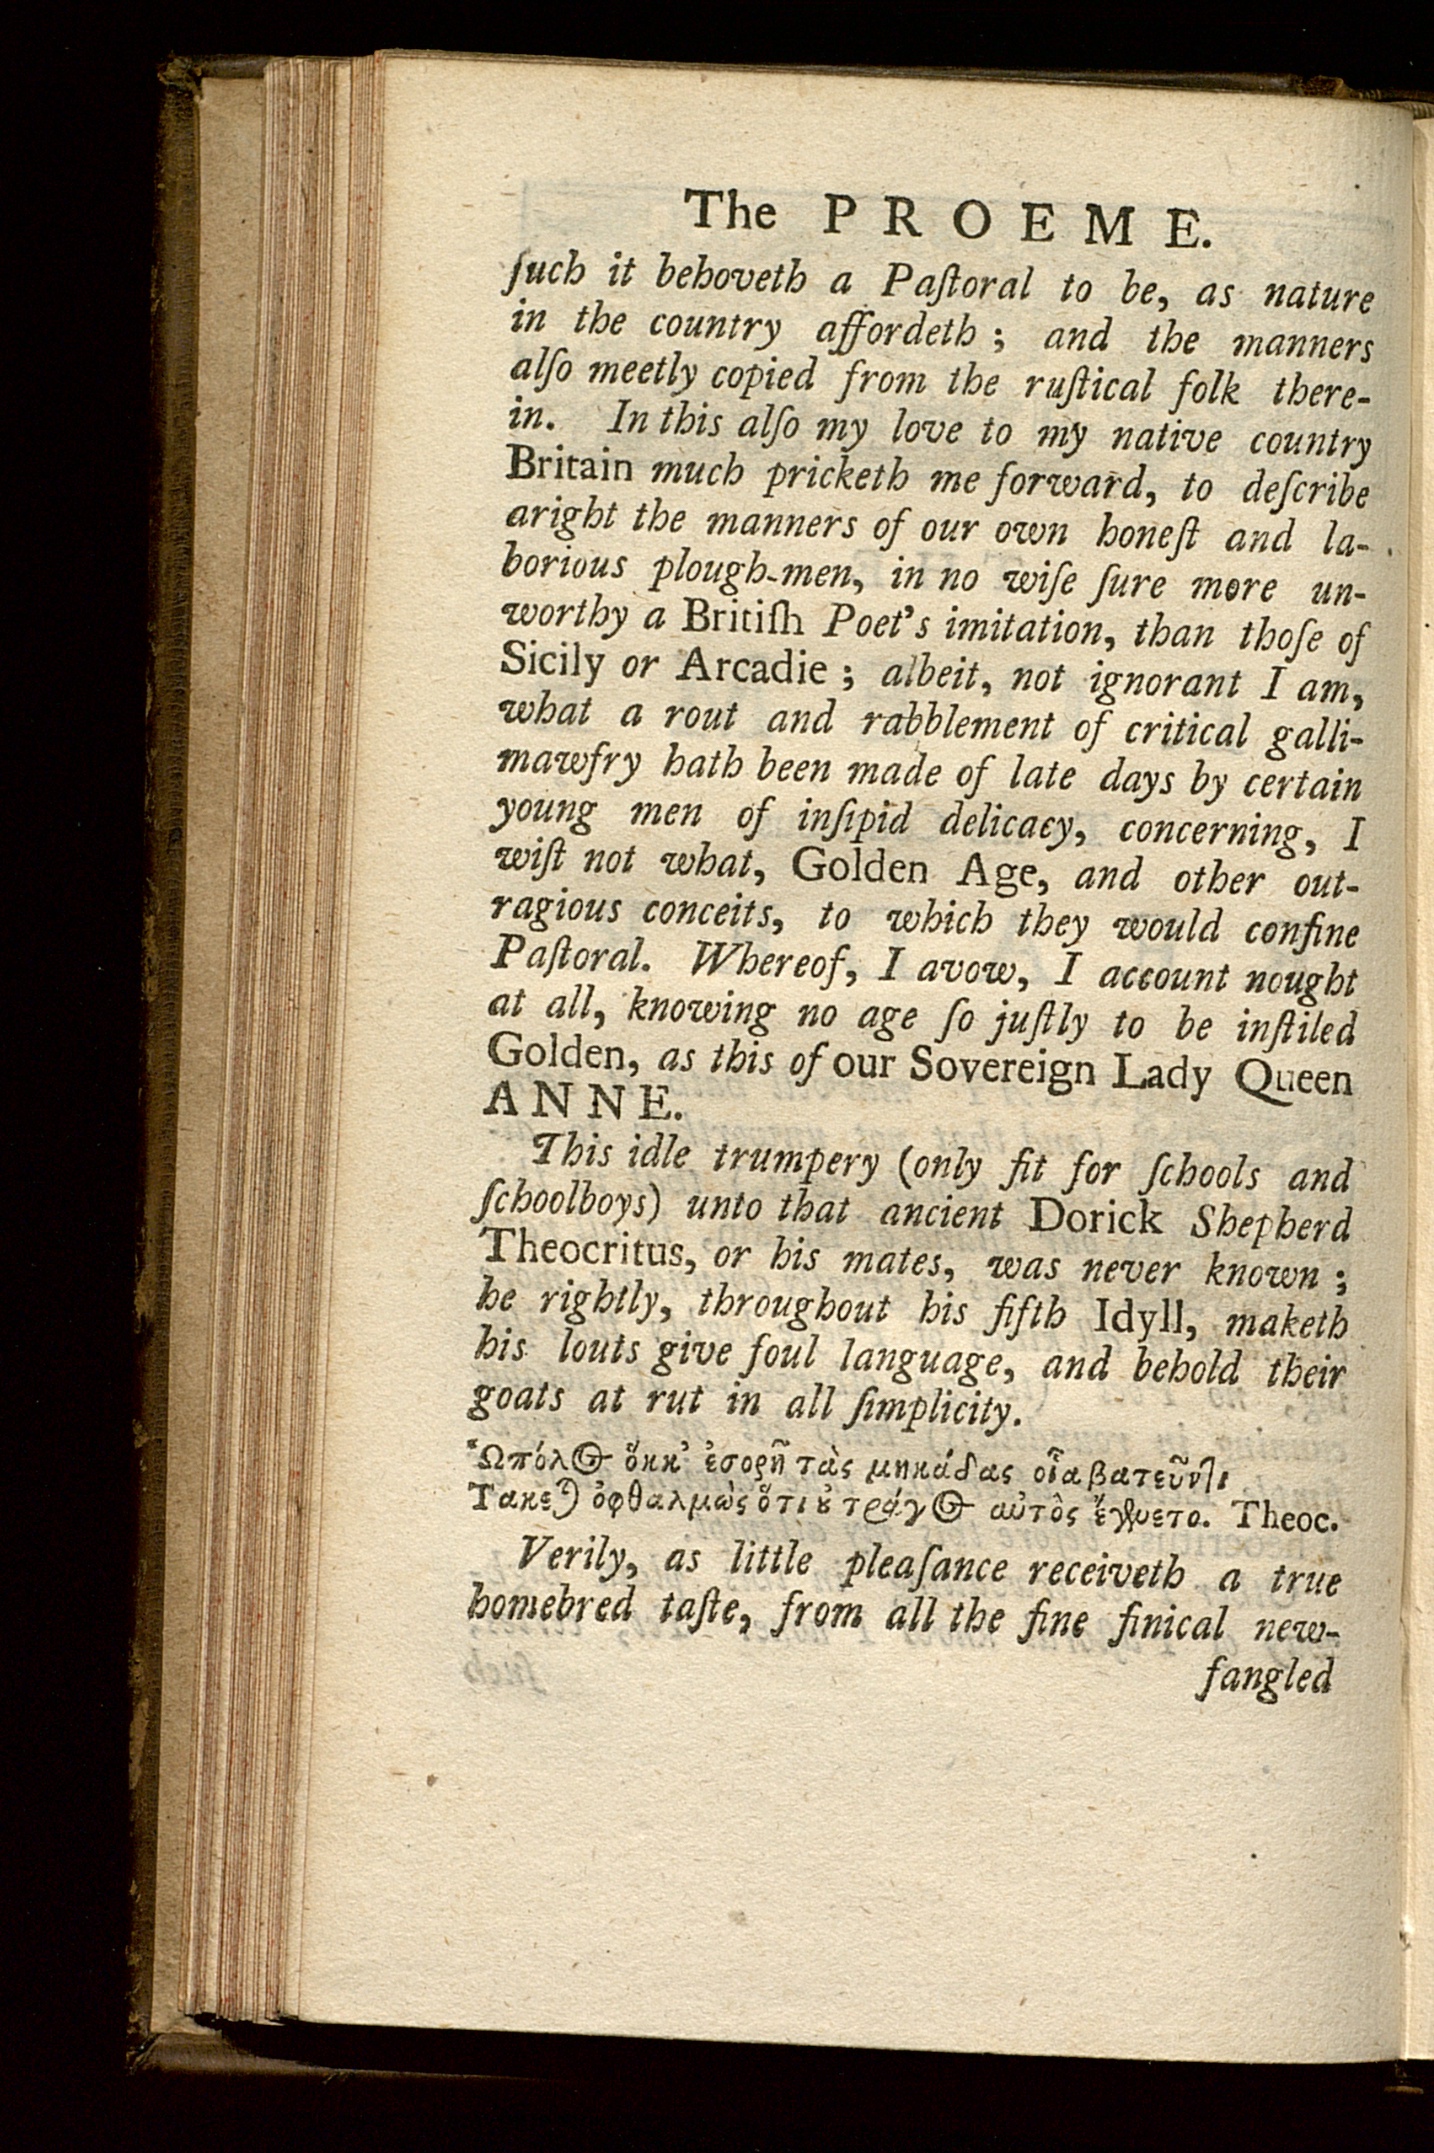 The PROEME.
ſuch it behoveth a Paſtoral to be, as nature
in the country affordeth ; and the manners
alſo meetly copied from the ruſtical folk there-
in. In this alſo my love to my native country
Britain much pricketh me forward, to deſcribe
aright the manners of our own honeſt and la-
borious plough-men, in no wiſe ſure more un-
worthy a Britiſh Poet's imitation, than thoſe of
Sicily or Arcadie ; albeit, not ignorant I am,
what a rout and rabblement of critical galli-
mawfry hath been made of late days by certain
young men of inſipid delicacy, concerning, I
wiſt not what, Golden Age, and other out-
ragious conceits, to which they would confine
Paſtoral. Whereof, I avow, I account nought
at all, knowing no age ſo juſtly to be inſtiled
Golden, as this of our Sovereign Lady Queen
ANNE.
This idle trumpery (only fit for ſchools and
ſchoolboys) unto that ancient Dorick Shepherd
Theocritus, or his mates, was never known ;
he rightly, throughout his fifth Idyll, maketh
his louts give foul language, and behold their
goats at rut in all ſimplicity.
Ὡπόλος ὅκκ' ἐσορῆ τὰς μηκάδας οἷα βατεῦντι
Τακεται ὀφθαλμὼς ὅτι ȣ τράγος αὐτὸς ἔγεντο. Theoc.
Verily, as little pleaſance receiveth a true
homebred taſte, from all the fine finical new-
fangled